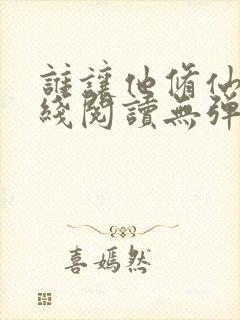 誰讓他脩仙
綫閱讀無彈
喜嫣然